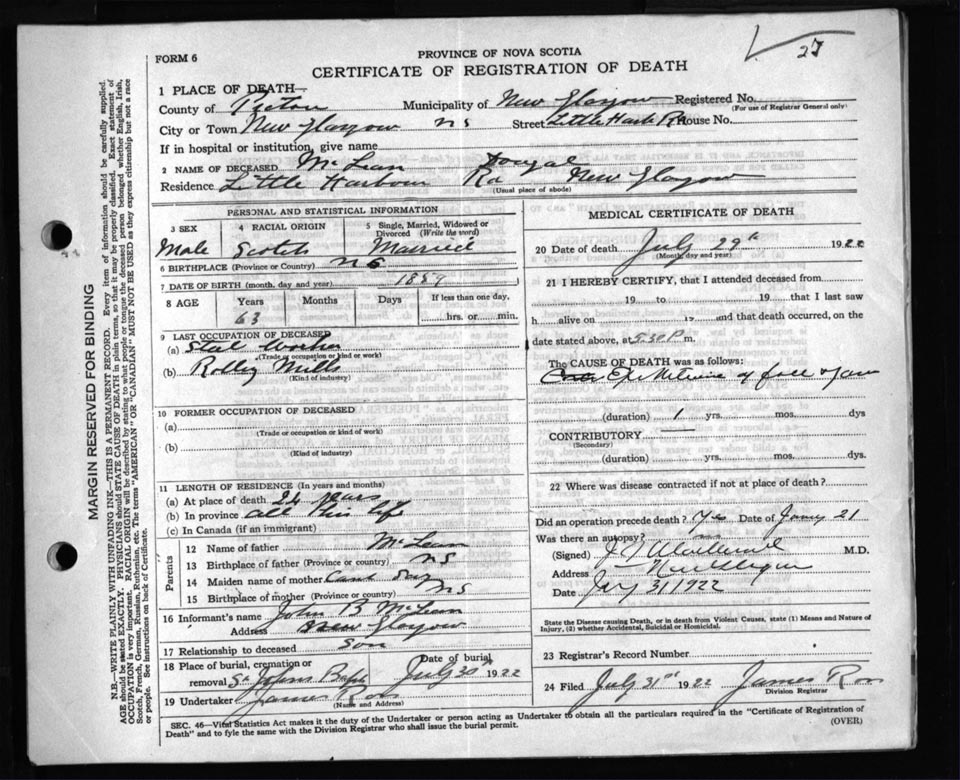 27
FORM 6
PROVINCE OF NOVA SCOTIA
CERTIFICATE OF REGISTRATION OF DEATH
1 PLACE OF DEATH—
County of Pictou Municipality of New Glasgow Registered No.
(For use of Registrar General only)
City or Town New Glasgow NS Street Little Harb Rd House No.
If in hospital or institution, give name
2 NAME OF DECEASED McLean Dougal
Residence Little Harbour Rd New Glasgow
(Usual place of abode)
PERSONAL AND STATISTICAL INFORMATION
3 SEX 4 RACIAL ORIGIN 5 Single, Married, Widowed or Divorced (Write the word)
Male Scotch Married
6 BIRTHPLACE (Province or Country) NS
7 DATE OF BIRTH (month, day and year) 1859
8 AGE Years Months Days If less than one day,
63 hrs. or min.
9 LAST OCCUPATION OF DECEASED
(a) Steel Worker
(Trade or occupation or kind or work)
(b) Rolling Mills
(Kind of industry)
10 FORMER OCCUPATION OF DECEASED
(a)
(Trade or occupation or kind of work)
(b)
(Kind of industry)
11 LENGTH OF RESIDENCE (In years and months)
(a) At place of death 24 years
(b) In province all his life
(c) In Canada (if an immigrant)
Parents
12 Name of father McLean
13 Birthplace of father (Province or country) NS
14 Maiden name of mother Cant Say
15 Birthplace of mother (Province or country) NS
16 Informant's name John B McLean
Address New Glasgow
17 Relationship to deceased Son
18 Place of burial, cremation or removal St Johns Date of burial July 30th 1922
19 Undertaker James Ross
(Name and Address)
MEDICAL CERTIFICATE OF DEATH
20 Date of death July 29th 1922
(Month, day and year)
21 I HEREBY CERTIFY, that I attended deceased from
19 to 19 that I last saw
h alive on 19 and that death occurred, on the
date stated above, at 5.30 P. m.
The CAUSE OF DEATH was as follows:
of
(duration) 1 yrs. mos. dys
CONTRIBUTORY
(Secondary)
(duration) yrs. mos. dys.
22 Where was disease contracted if not at place of death?
Did an operation precede death? Yes Date of 21
Was there an autopsy? no
(Signed) M.D.
Address New Glasgow
Date 31, 1922
State the Disease causing Death, or in death from Violent Causes, state (1) Means and Nature of
Injury, (2) whether Accidental, Suicidal or Homicidal.
23 Registrar's Record Number
24 Filed July 31st 1922 James Ross
Division Registrar
SEC. 46—Vital Statistics Act makes it the duty of the Undertaker or person acting as Undertaker to obtain all the particulars required in the "Certificate of Registration of
Death" and to fyle the same with the Division Registrar who shall issue the burial permit.
(OVER)
MARGIN RESERVED FOR BINDING
N.B.—WRITE PLAINLY WITH UNFADING INK—THIS IS A PERMANENT RECORD. Every item of information should be carefully supplied.
AGE should be stated EXACTLY. PHYSICIANS should STATE CAUSE OF DEATH in plain terms, so that it may be properly classified. Exact statement of
OCCUPATION is very important. RACIAL ORIGIN will be described by stating to what people or tongue the deceased person belonged whether English, Irish,
Scotch, French, German, Russian, Ruthenian, etc. The terms "AMERICAN" OR "CANADIAN" MUST NOT BE USED as they express citizenship but not a race
or people. See instructions on back of Certificate.